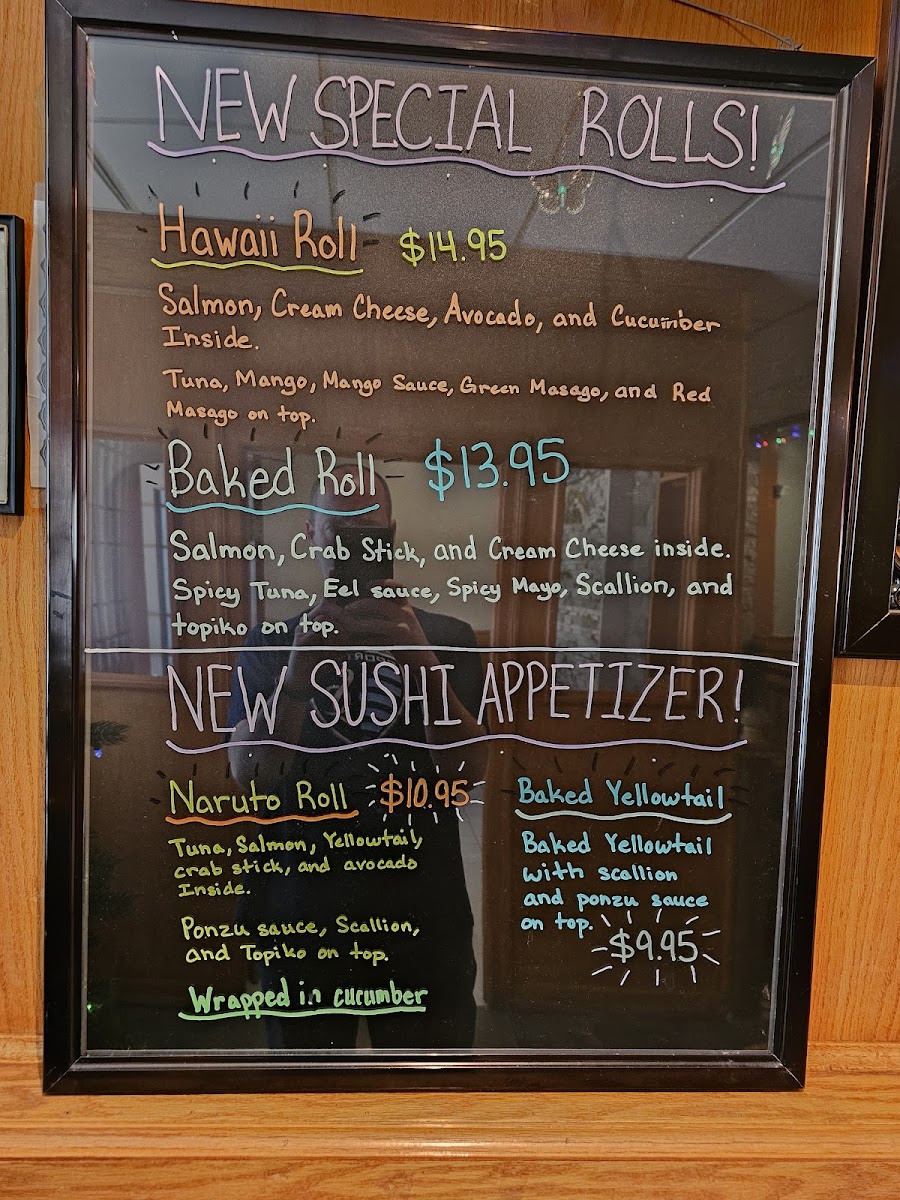 NEW SPECIAL ROLLS!
Hawaii Roll $14.95
Salmon, Cream Cheese, Avocado, and Cucumber
Inside.
Tuna, Mango, Mango Sauce, Green Masago, and Red
Masago on top.
Baked Roll $13.95
Salmon, Crab Stick, and Cream Cheese inside.
Spicy Tuna, Eel sauce, Spicy Mayo, Scallion, and
topiko on top.
NEW SUSHI APPETIZER!
Naruto Roll $10.95
Tuna, Salmon, Yellowtail,
crab stick, and avocado
Inside.
Ponzu sauce, Scallion,
and Topiko on top.
Wrapped in cucumber
Baked Yellowtail
Baked Yellowtail
with scallion
and ponzu sauce
on top.
$9.95